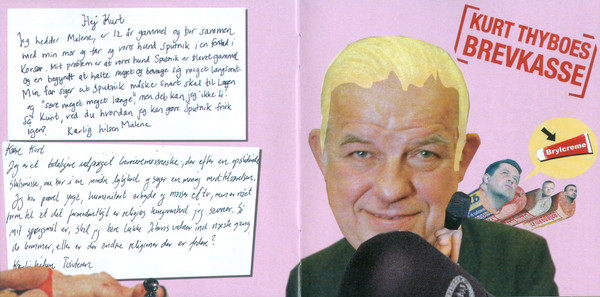 Hej Kurt
Jeg hedder Malene, er 12 år gammel og bor sammen
med min mor og far og vores hund Sputnik i en forstad i
Korsør. Mit problem er at vores hund Sputnik er blevet gammel
og en begyndt at halte meget og bevæge sig meget langsomt.
Min far siger at Sputnik måske snart skal til Lægen
og "sove meget meget længe", men det kan jeg ikke li'.
Så Kurt, ved du hvordan jeg kan gøre Sputnik frisk
igen? Kærlig hilsen Malene
Kære Kurt
Jeg er et
men bor i en moden og søger en mening med tilværelsen.
Jeg har prøvet yoga, humanitært arbejde og
frem til at det formodentligt er religiøs jeg savner. Så
mit spørgsmål er, skal jeg bare lukke Jehovas vidner ind næste gang
de kommer, eller er der andre religioner der er federe?
Kærlig hilsen
KURT THYBOES
BREVKASSE
Brylcreme